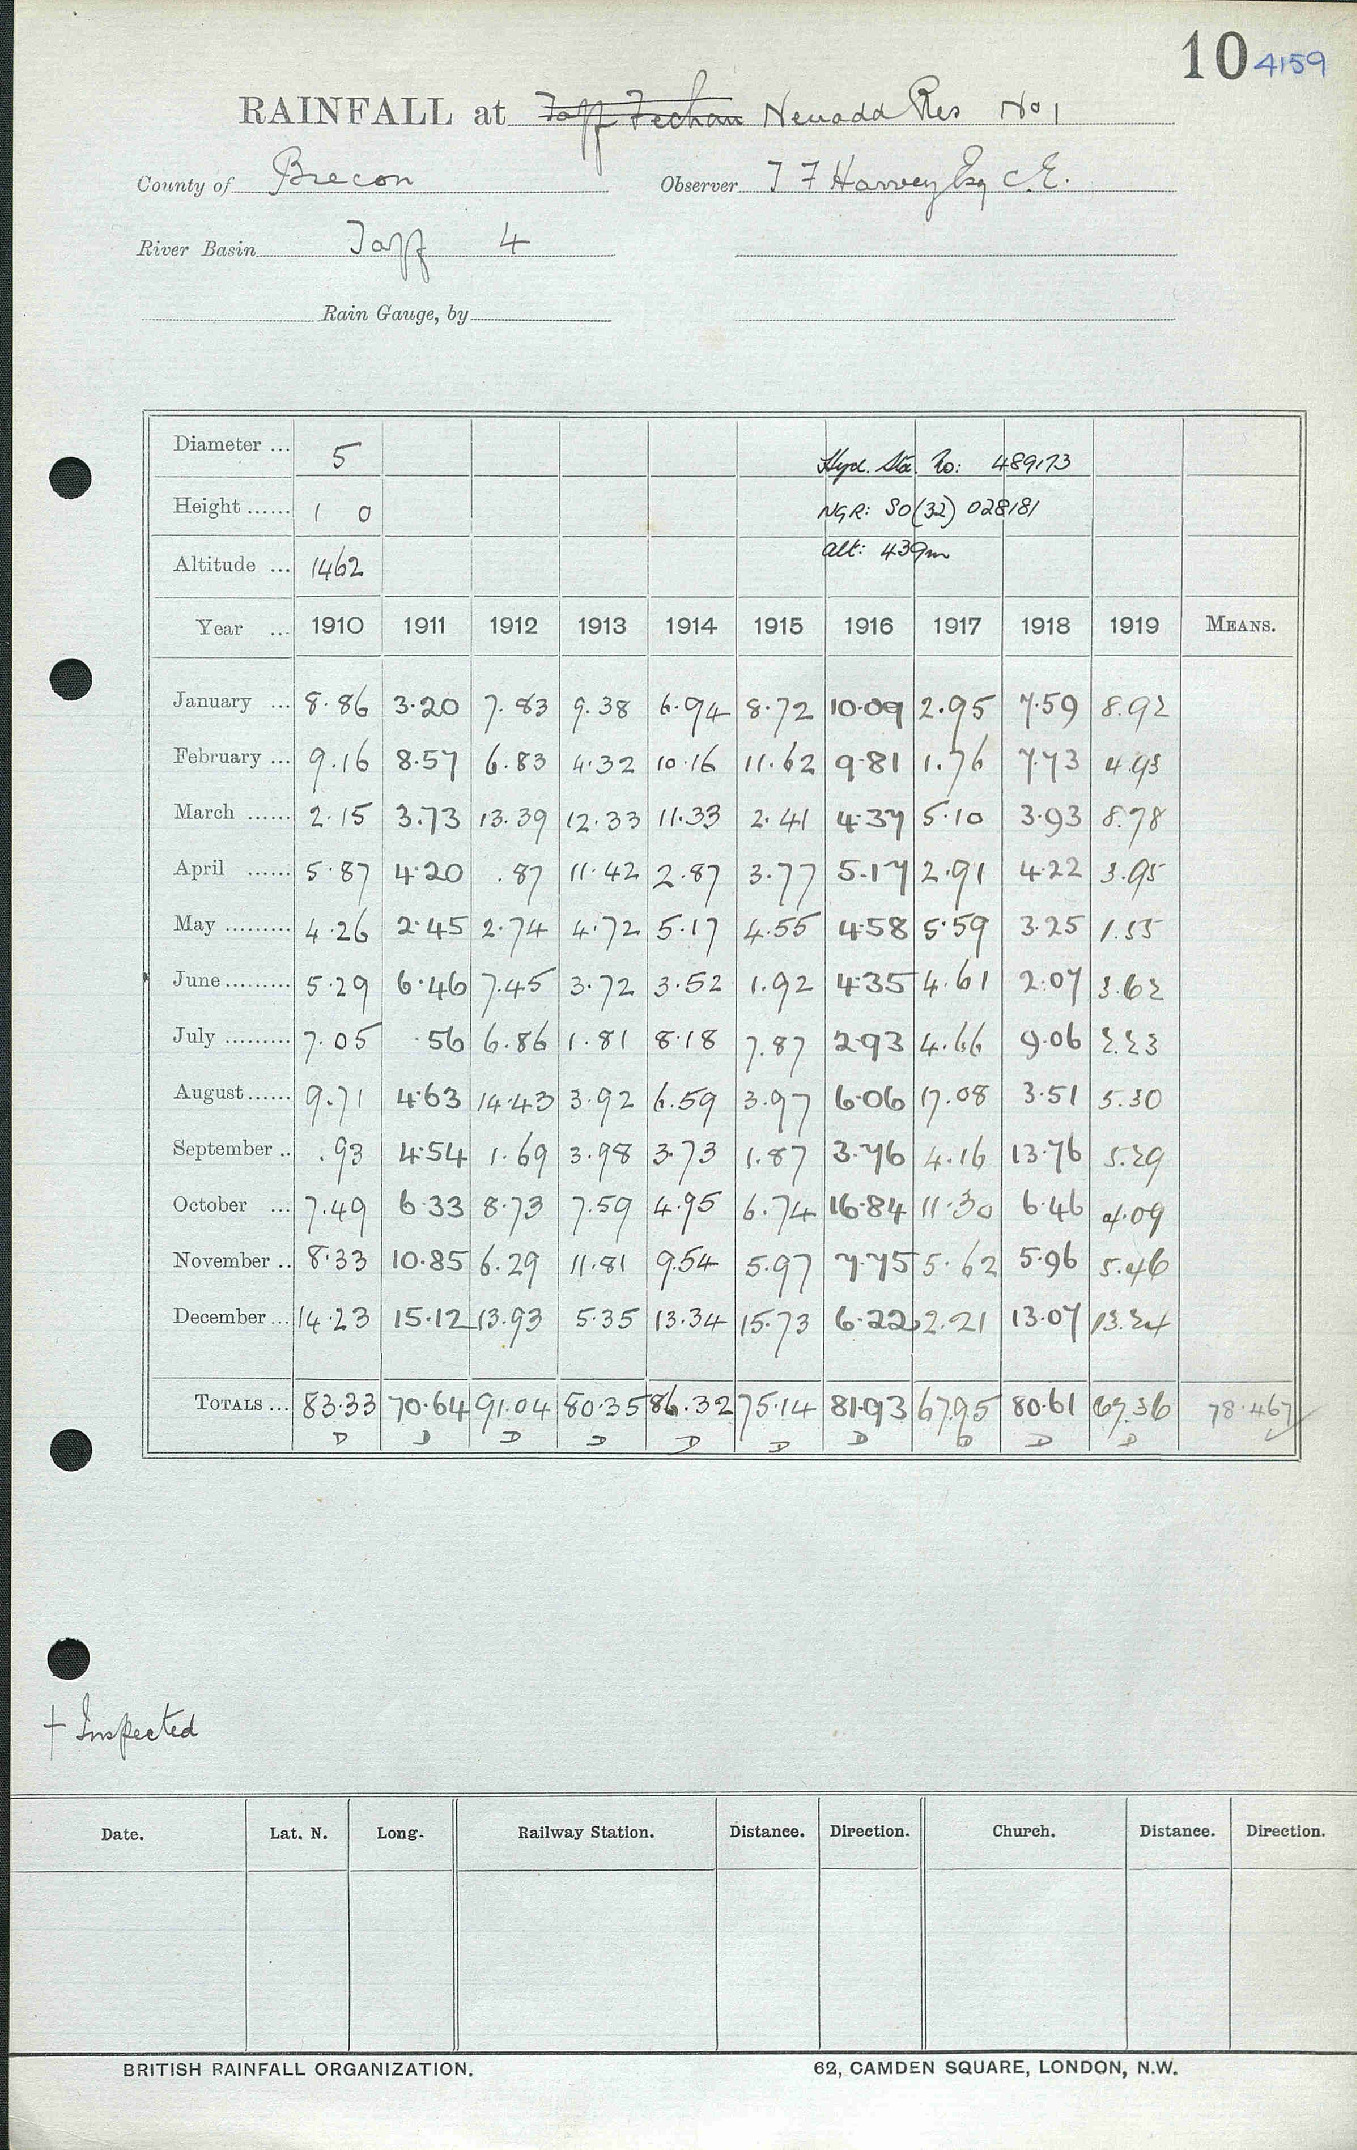 10 4159
RAINFALL at Taff Fechan Neuadd Res No 1
County of Brecon Observer T F Harvey Esq C.E.
River Basin Taff 4
Rain Gauge, by
Diameter ... 5 Hyd. Sta. No: 489173
Height ...... 1 0 NGR: SO(32) 028181
Altitude ... 1462 alt: 439m
Year ... 1910 1911 1912 1913 1914 1915 1916 1917 1918 1919 MEANS.
January ... 8.86 3.20 7.83 9.38 6.94 8.72 10.09 2.95 7.59 8.92
February ... 9.16 8.57 6.83 4.32 10.16 11.62 9.81 1.76 7.73 4.93
March ...... 2.15 3.73 13.39 12.33 11.33 2.41 4.37 5.10 3.93 8.78
April ...... 5.87 4.20 .87 11.42 2.87 3.77 5.17 2.91 4.22 3.95
May ......... 4.26 2.45 2.74 4.72 5.17 4.55 4.58 5.59 3.25 1.55
June ......... 5.29 6.46 7.45 3.72 3.52 1.92 4.35 4.61 2.07 3.62
July ......... 7.05 .56 6.86 1.81 8.18 7.87 2.93 4.66 9.06 2.23
August ...... 9.71 4.63 14.43 3.92 6.59 3.97 6.06 17.08 3.51 5.30
September .. .93 4.54 1.69 3.98 3.73 1.87 3.76 4.16 13.76 5.29
October ... 7.49 6.33 8.73 7.59 4.95 6.74 16.84 11.30 6.46 4.09
November .. 8.33 10.85 6.29 11.81 9.54 5.97 7.75 5.62 5.96 5.46
December ... 14.23 15.12 13.93 5.35 13.34 15.73 6.22 2.21 13.07 13.24
TOTALS ... 83.33 70.64 91.04 80.35 86.32 75.14 81.93 67.95 80.61 67.36 78.467
D D D D D D D D D D
+ Inspected
Date. Lat. N. Long. Railway Station. Distance. Direction. Church. Distance. Direction.
BRITISH RAINFALL ORGANIZATION. 62, CAMDEN SQUARE, LONDON, N.W.